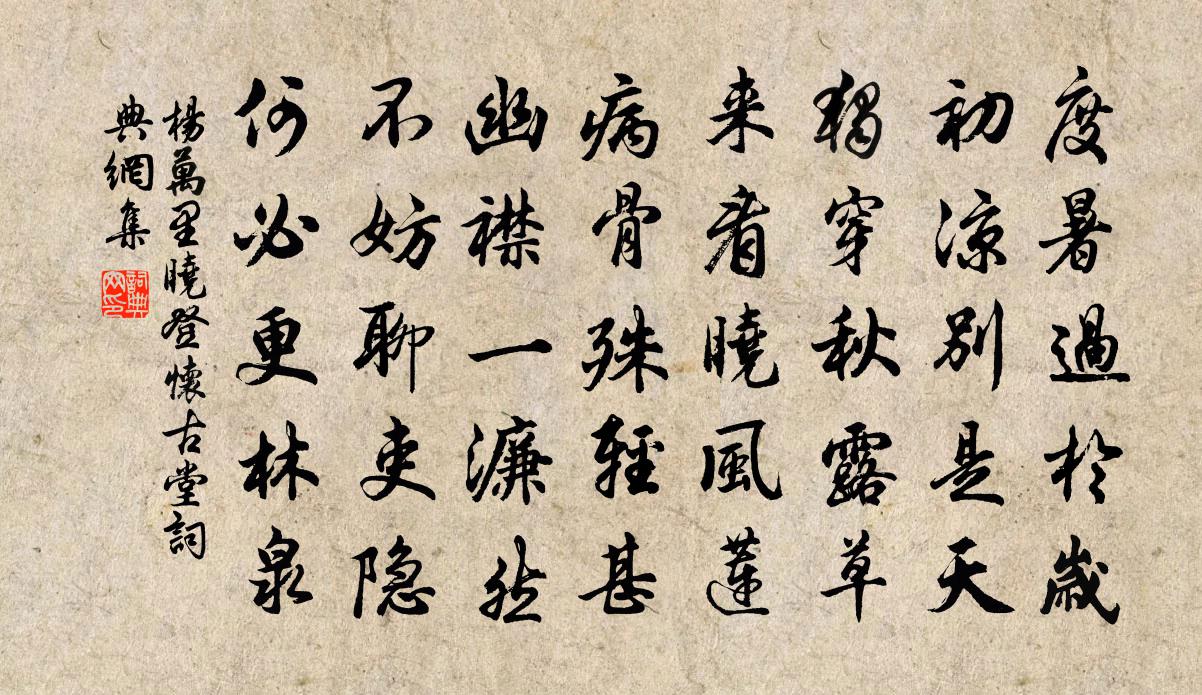 度暑過於歲
初涼別是天
獨穿秋露草
来看曉風蓮
病骨殊輕甚
幽襟一濂然
不妨聊吏隐
何必更林泉
楊萬里曉登懷古堂詞
典網集
詞典
网印